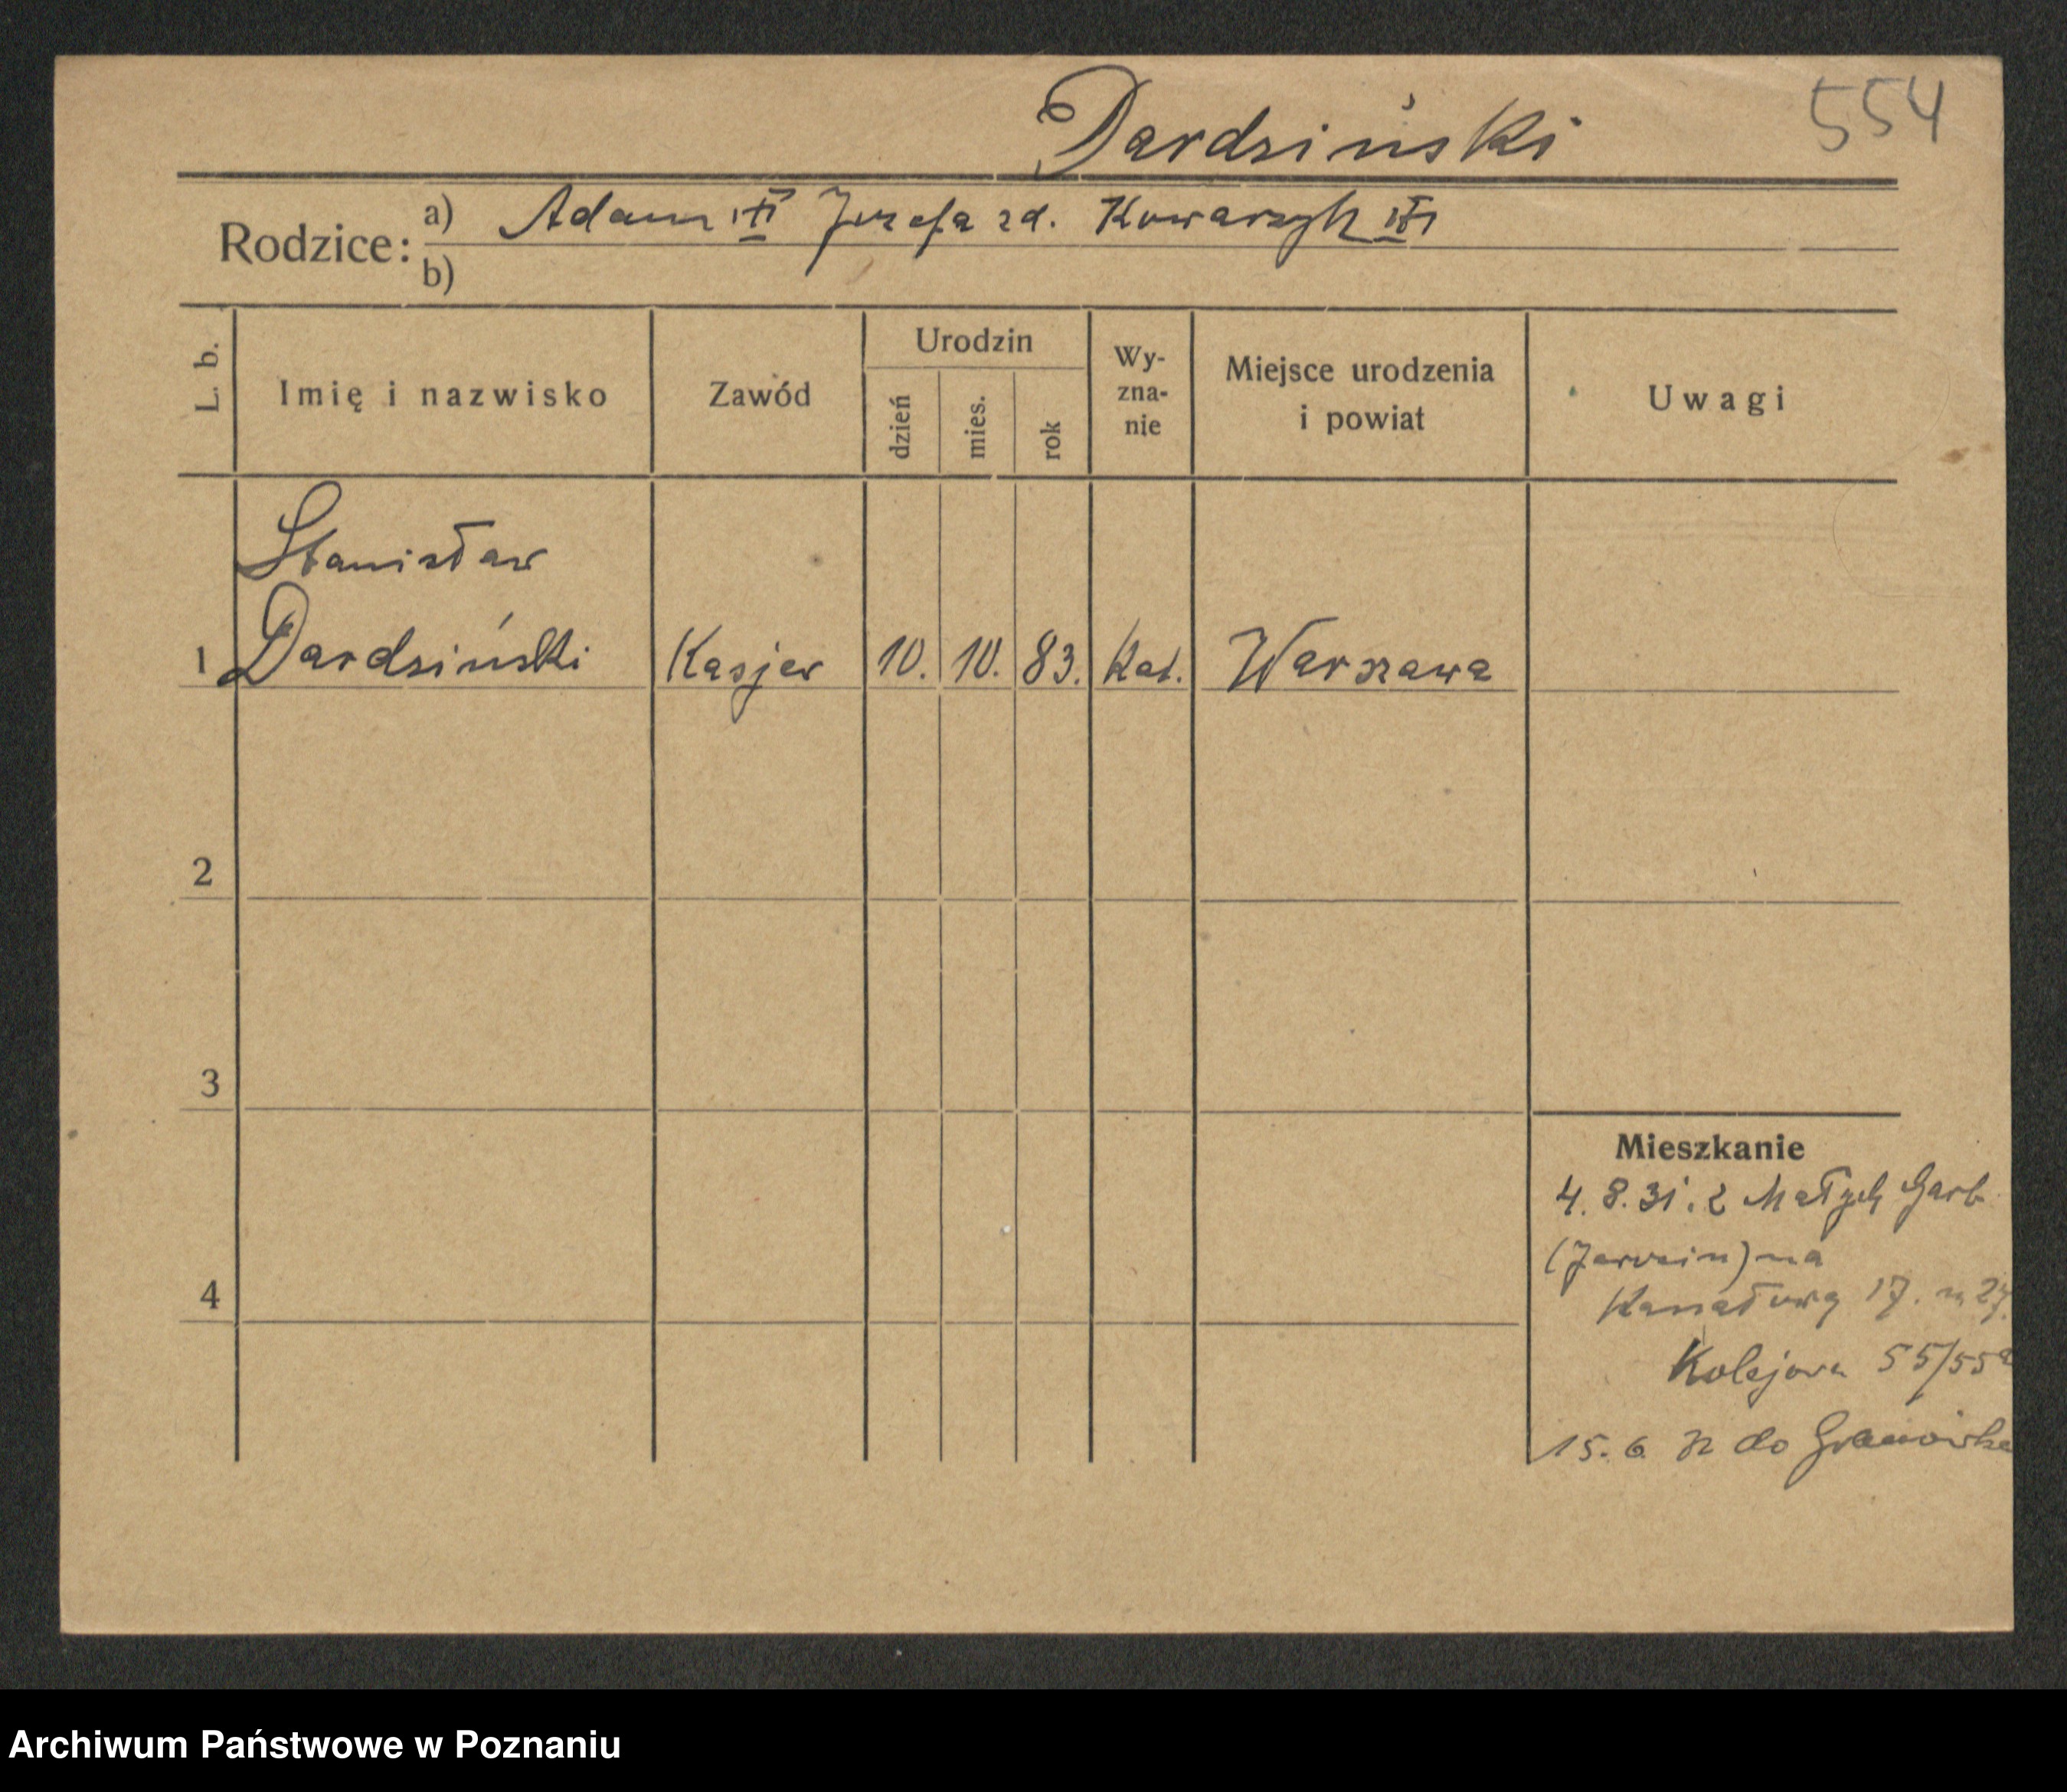 Dardziński
554
Rodzice: a) Adam Józefa zd. Kowarzyk
b)
L. b.
Imię i nazwisko
Zawód
Urodzin
dzień
mies.
rok
Wy-
zna-
nie
Miejsce urodzenia
i powiat
Uwagi
Stanisław
1 Dardziński Kasjer 10. 10. 83. Kat. Warszawa
2
3
4
Mieszkanie
4. 8. 31. z Małych Garb
na
Kanałową 17. m 27.
Kolejowa 55/55a
15. 6. 32 do Granówka
Archiwum Państwowe w Poznaniu